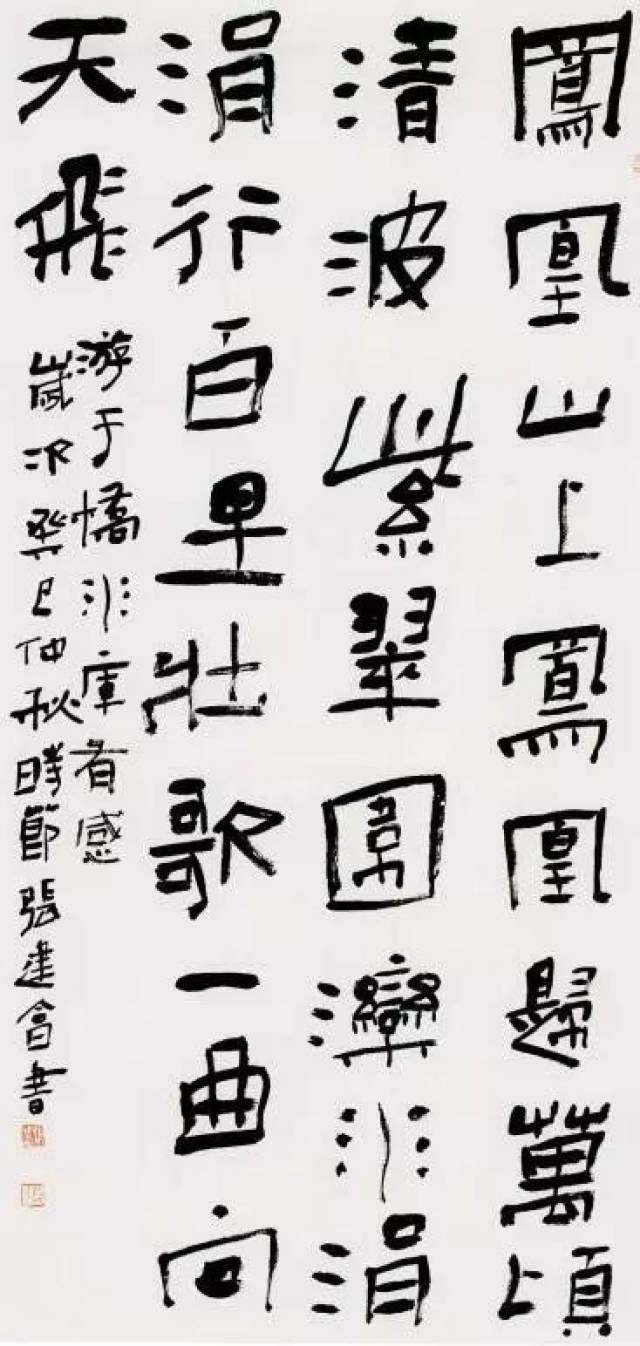 鳳凰山上鳳凰歸萬頃
清波紫翠圍灤水涓
涓行百里壯歌一曲向
天飛
游于橋水庫有感
歲次癸巳仲秋時節張建會書